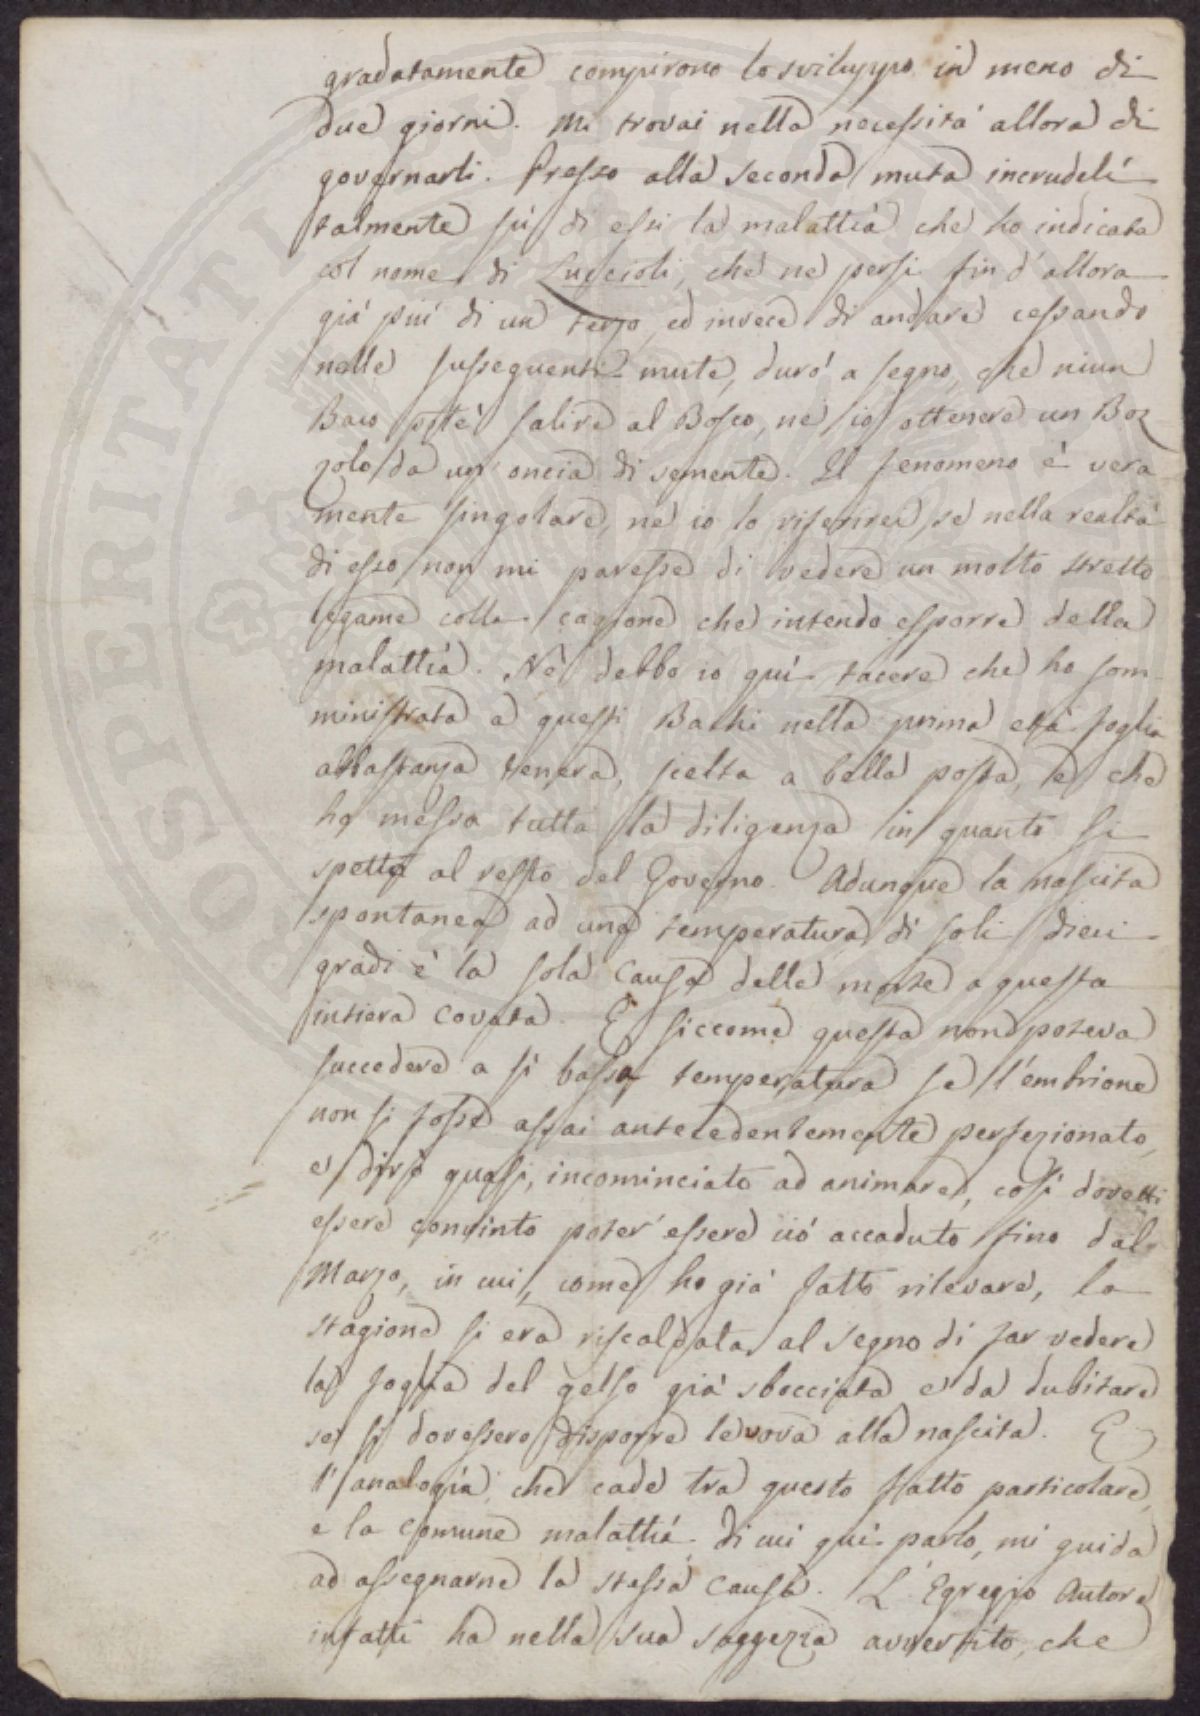 gradatamente compirono lo sviluppo in meno di
due giorni. Mi trovai nella necessità allora di
governarli. Presso alla seconda muta incrudelì
talmente sù di essi la malattia che ho indicata
col nome di Luccioli, che ne persi fin d'allora
già più di un terzo, ed invece di andare cessando
nelle susseguenti mute, durò a segno, che niun
Baco potè salire al Bosco, nè io ottenere un Boz
zolo da un'oncia di semente. Il fenomeno è vera
mente singolare, nè io lo riferirei, se nella realtà
di esso non mi paresse di vedere un molto stretto
legame colla cagione che intendo esporre della
malattia. Nè debbo io quì tacere che ho som-
ministrata a questi Bachi nella prima età foglia
abbastanza tenera, scelta a bella posta, e che
ho messa tutta la diligenza in quanto si
spetta al resto del Governo. Adunque la nascita
spontanea ad una temperatura di soli dieci
gradi è la sola causa della morte a questa
intiera covata. E siccome questa non poteva
succedere a sì bassa temperatura se l'embrione
non si fosse assai antecedentemente perfezionato,
e dirsi quasi, incominciato ad animare, così dovetti
essere convinto poter essere ciò accaduto fino dal
Marzo, in cui, come ho già fatto rilevare, la
stagione si era riscaldata al segno di far vedere
la foglia del gelso già sbocciata e da dubitare
se si dovessero disporre le uova alla nascita. E
l'analogia che cade tra questo fatto particolare,
e la comune malattia di cui quì parlo, mi guida
ad assegnarne la stessa causa. L'Egregio Autore
infatti ha nella sua saggezza avvertito, che
PROSPERITATI PVBLICAE